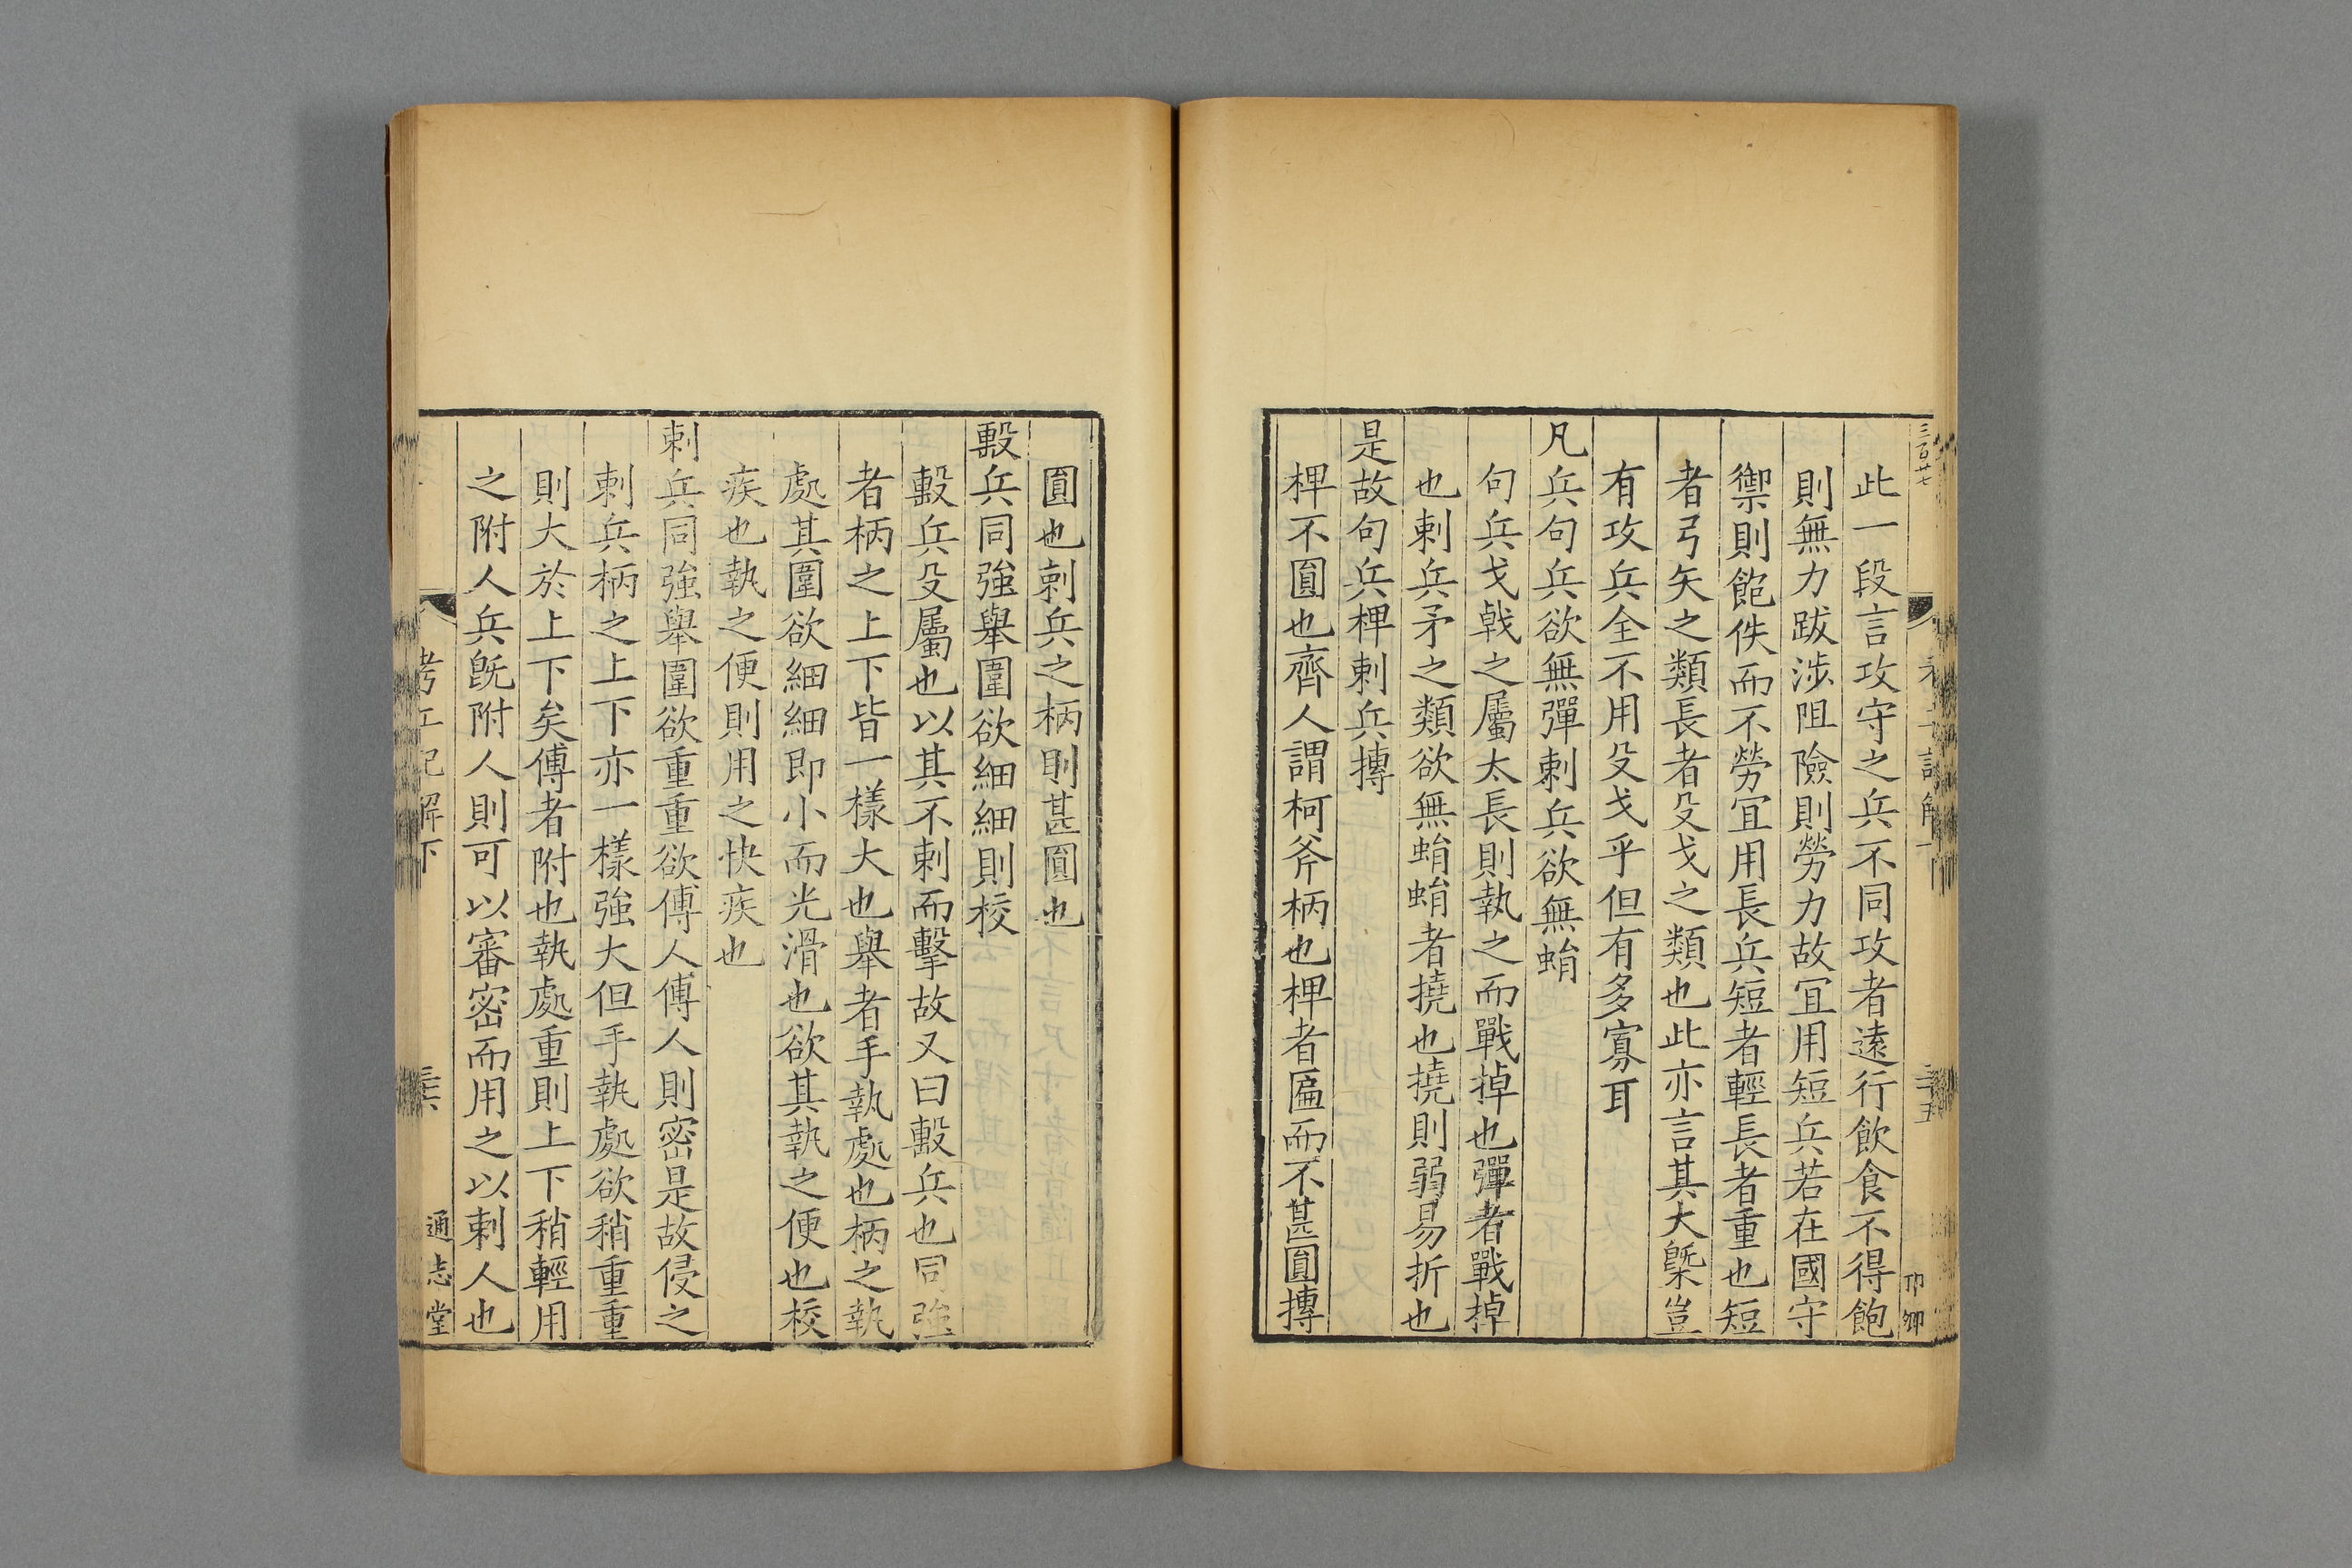 三百廿七
此一段言攻守之兵不同攻者遠行飲食不得飽
則無力跋涉阻險則勞力故冝用短兵若在國守
禦則飽佚而不勞冝用長兵短者輕長者重也短
者弓矢之類長者殳戈之類也此亦言其大槩豈
有攻兵全不用殳戈乎但有多寡耳
凡兵句兵欲無彈刺兵欲無蜎
句兵戈戟之屬太長則執之而戰掉也彈者戰掉
也刺兵矛之類欲無蜎蜎者撓也撓則弱易折也
是故句兵椑刺兵摶
椑不圓也齊人謂柯斧柄也椑者匾而不甚圓摶
圓也刺兵之柄則甚圓也
毄兵同強舉圍欲細細則校
毄兵殳屬也以其不刺而擊故又曰毄兵也同強
者柄之上下皆一樣大也舉者手執處也柄之執
處其圍欲細細即小而光滑也欲其執之便也校
疾也執之便則用之快疾也
刺兵同強舉圍欲重重欲傅人傅人則密是故侵之
刺兵柄之上下亦一樣強大但手執處欲稍重重
則大於上下矣傅者附也執處重則上下稍輕用
之附人兵旣附人則可以審密而用之以刺人也
考工記解下
通志堂